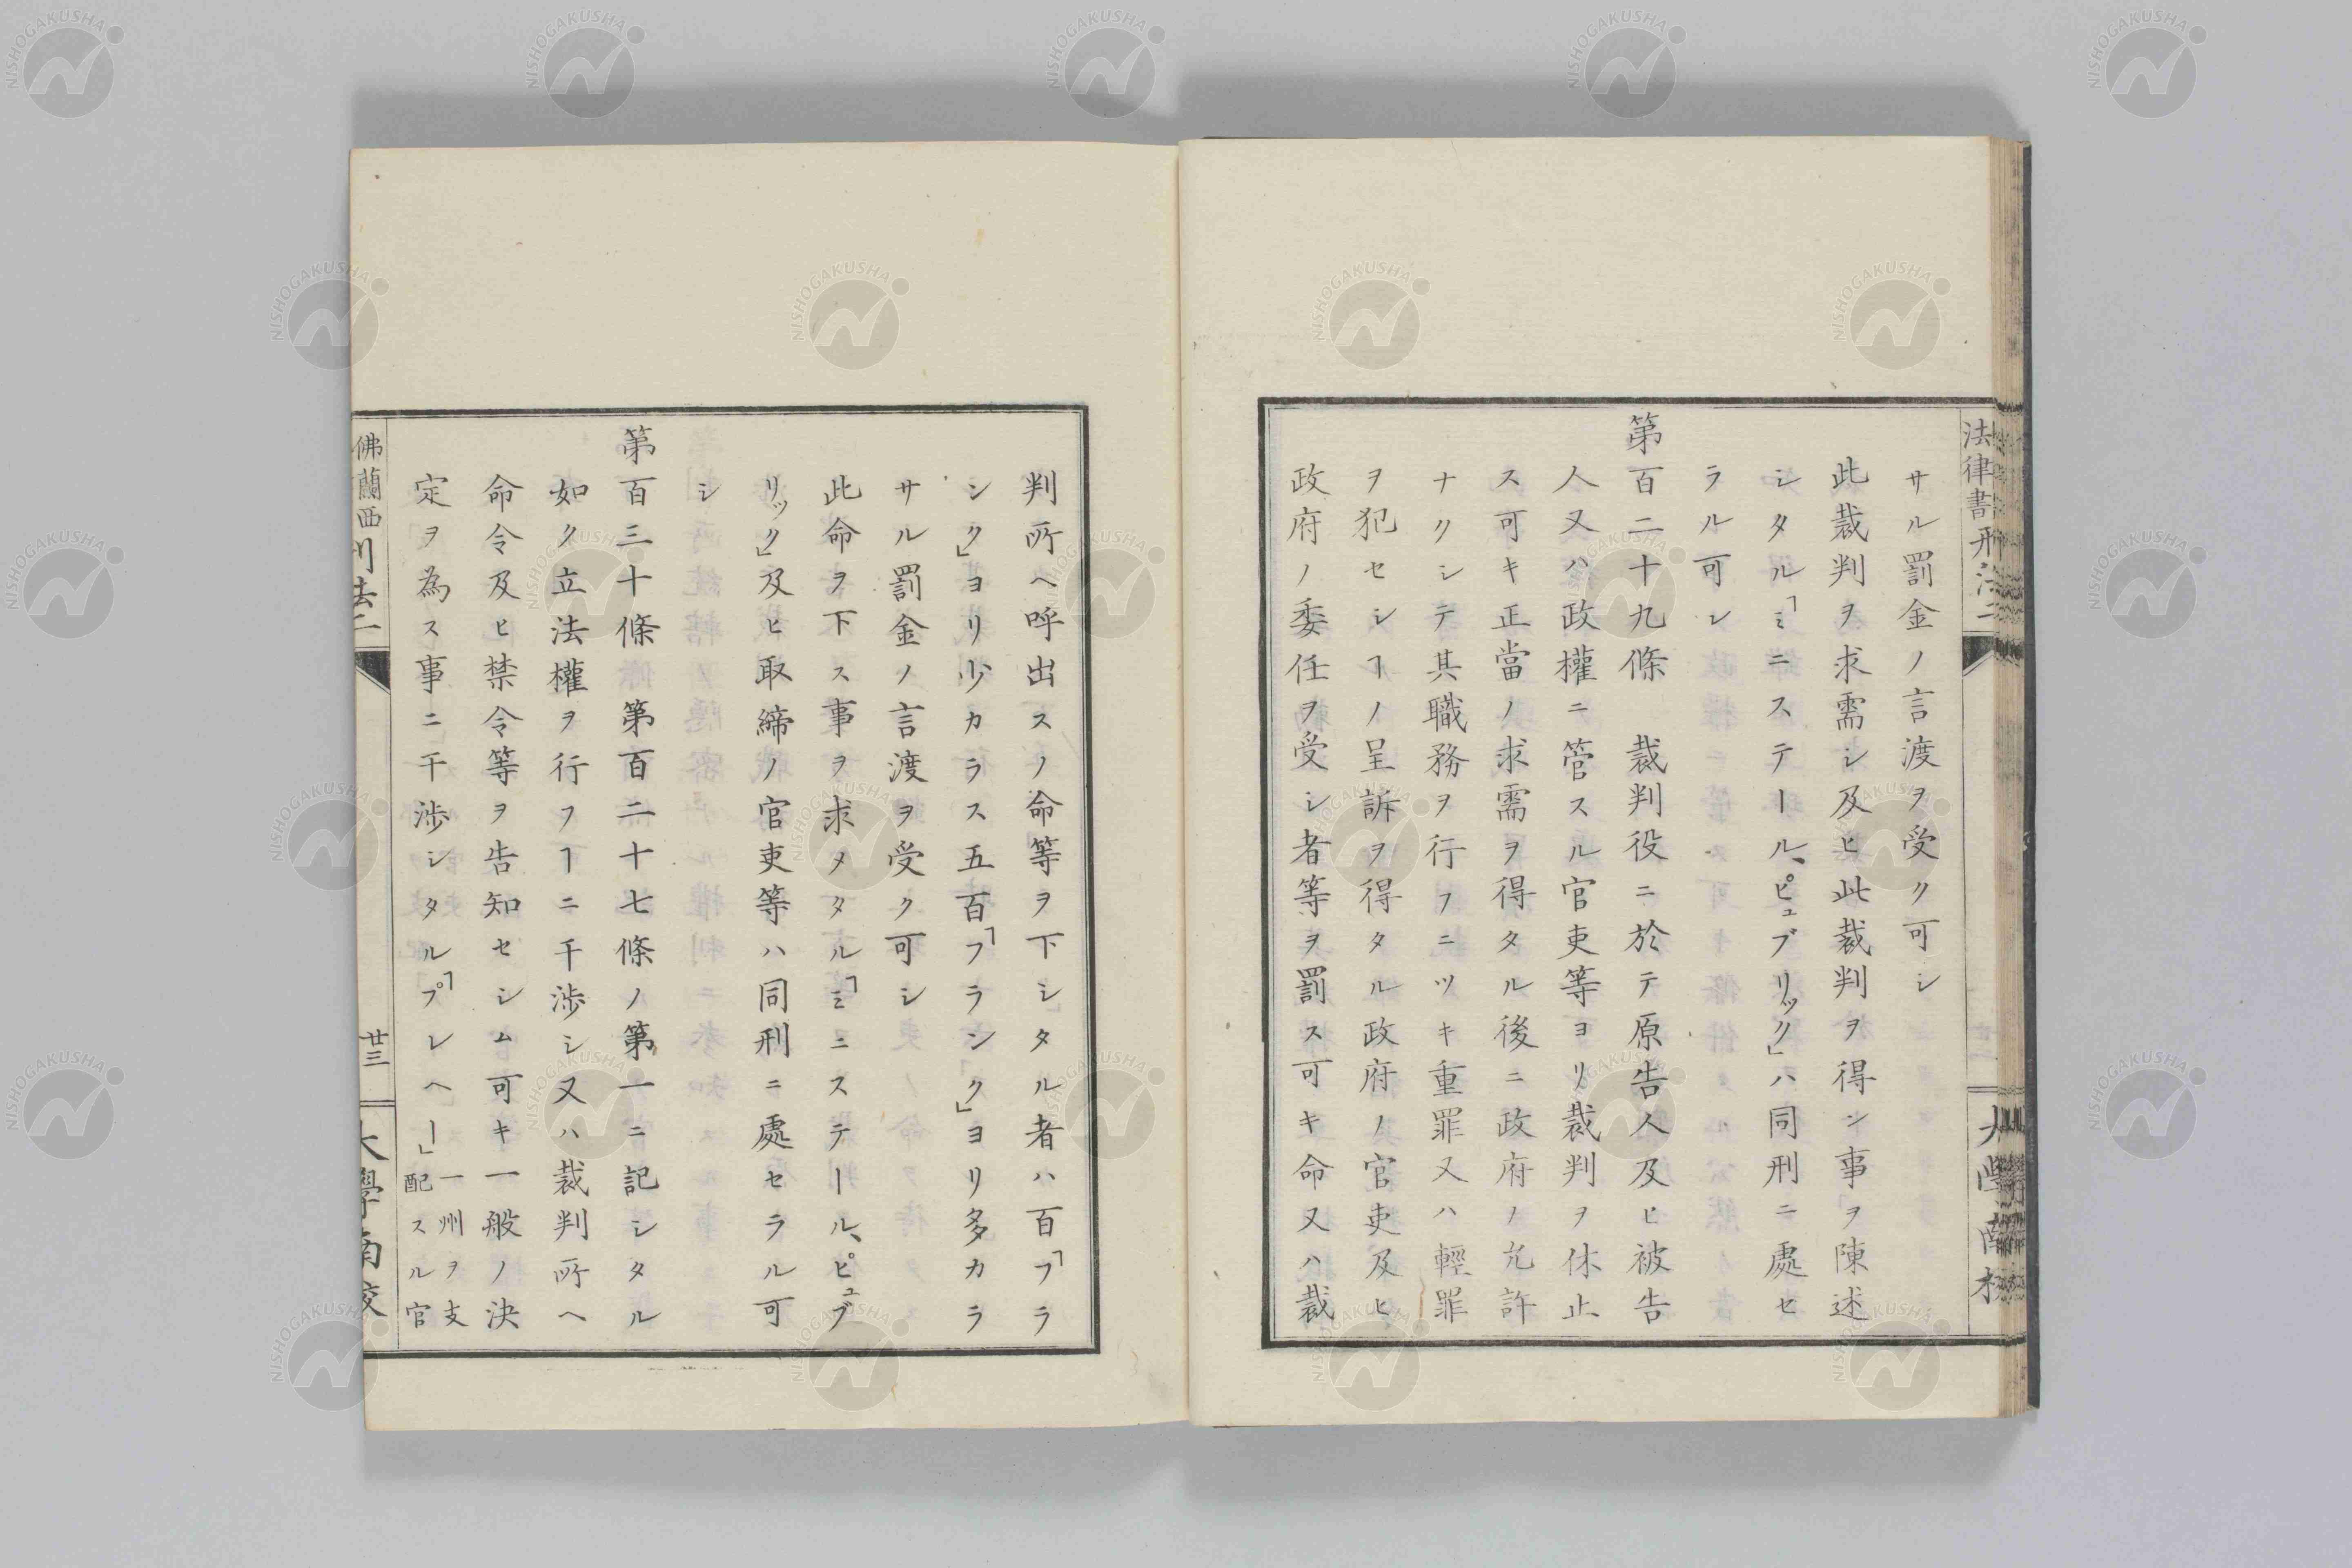 法律書刑法二
サル罰金ノ言渡ヲ受ク可シ
此裁判ヲ求需シ及ヒ此裁判ヲ得ン事ヲ陳述
シタル「ミニステール、ピュブリック」ハ同刑ニ處セ
ラル可シ
第百二十九條　裁判役ニ於テ原告人及ヒ被告
人又ハ政權ニ管スル官吏等ヨリ裁判ヲ休止
ス可キ正當ノ求需ヲ得タル後ニ政府ノ允許
ナクシテ其職務ヲ行フニツキ重罪又ハ輕罪
ヲ犯セシヿノ呈訴ヲ得タル政府ノ官吏及ヒ
政府ノ委任ヲ受シ者等ヲ罰ス可キ命又ハ裁
判所ヘ呼出スノ命等ヲ下シタル者ハ百「フラ
ンク」ヨリ少カラス五百「フランク」ヨリ多カラ
サル罰金ノ言渡ヲ受ク可シ
此命ヲ下ス事ヲ求メタル「ミニステール、ピュブ
リック」及ヒ取締ノ官吏等ハ同刑ニ處セラル可
シ
第百三十條　第百二十七條ノ第一ニ記シタル
如ク立法權ヲ行フヿニ干渉シ又ハ裁判所ヘ
命令及ヒ禁令等ヲ告知セシム可キ一般ノ決
定ヲ為ス事ニ干渉シタル「プレヘー」一州ヲ支
配スル官
佛蘭西刑法二
廿三
大學南校
NISHOGAKUSHA